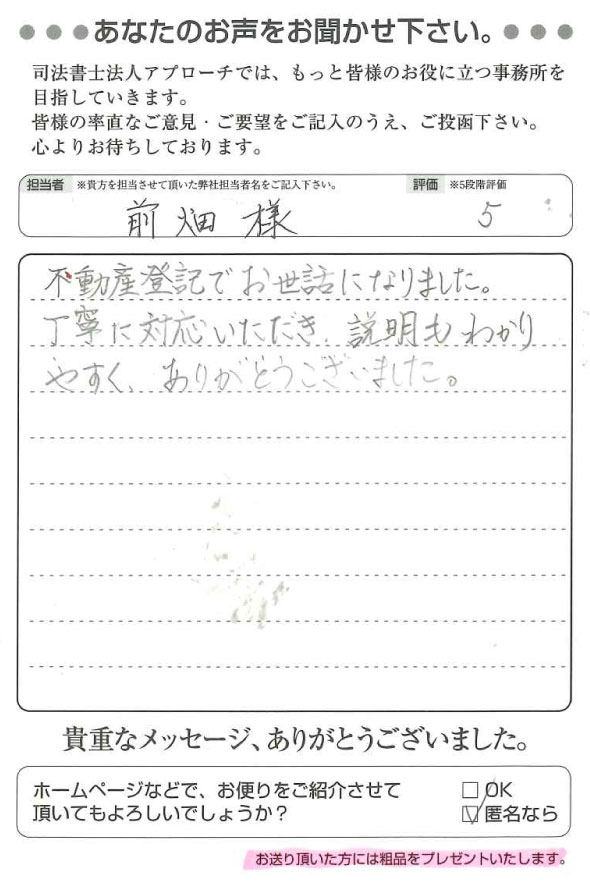 ●●●あなたのお声をお聞かせ下さい。●●●
司法書士法人アプローチでは、もっと皆様のお役に立つ事務所を
目指していきます。
皆様の率直なご意見・ご要望をご記入のうえ、ご投函下さい。
心よりお待ちしております。
担当者 ※貴方を担当させて頂いた弊社担当者名をご記入下さい。 評価 ※5段階評価
前畑様 5
不動産登記でお世話になりました。
丁寧に対応いただき、説明もわかり
やすく、ありがとうございました。
貴重なメッセージ、ありがとうございました。
ホームページなどで、お便りをご紹介させて □OK
頂いてもよろしいでしょうか? ☑匿名なら
お送り頂いた方には粗品をプレゼントいたします。